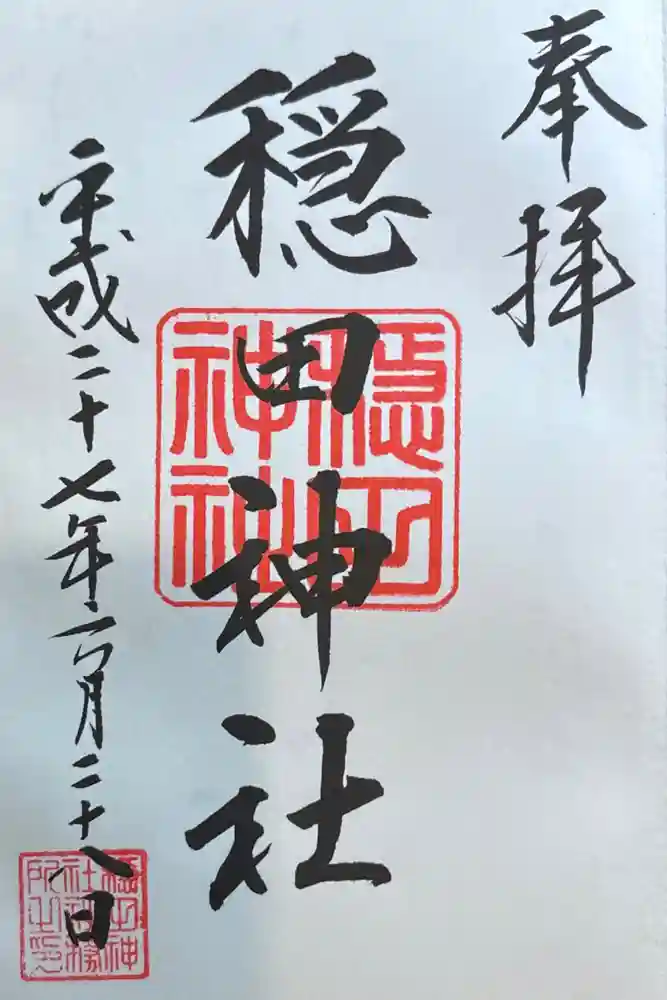 奉拝
穏田神社
平成二十七年六月二十八日
穏田
神社
穏田神
社社務
所之印